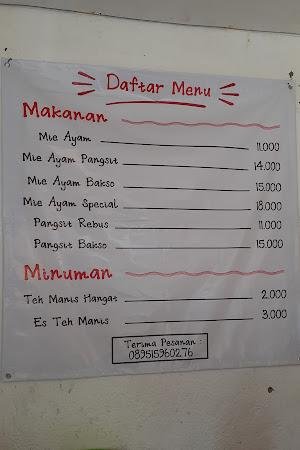 Daftar Menu
Makanan
Mie Ayam 11.000
Mie Ayam Pangsit 14.000
Mie Ayam Bakso 15.000
Mie Ayam Special 18.000
Pangsit Rebus 11.000
Pangsit Bakso 15.000
Minuman
Teh Manis Hangat 2.000
Es Teh Manis 3.000
Terima Pesanan :
089515960276